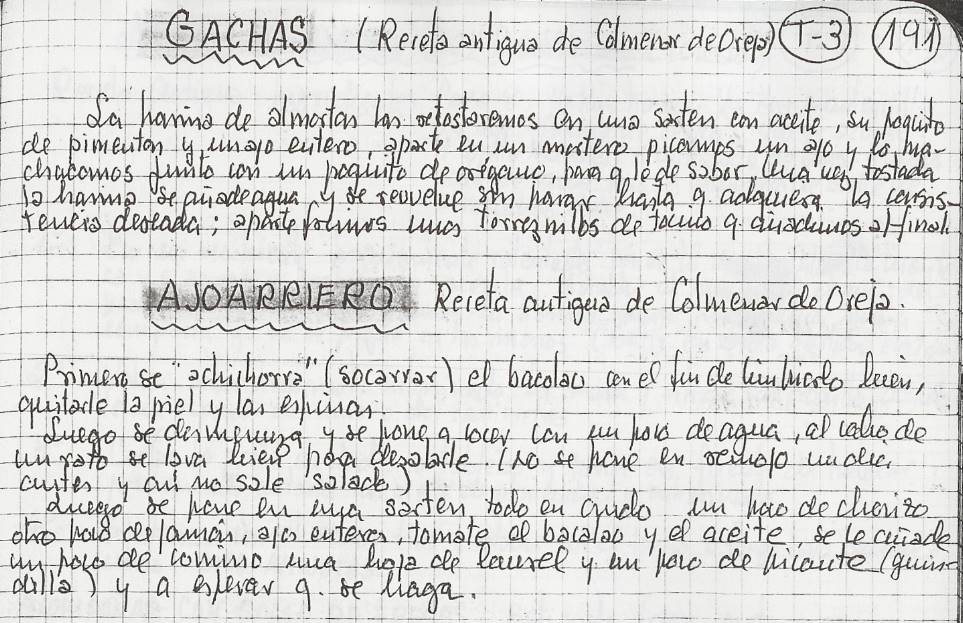 GACHAS (Receta antigua de Colmenar de Oreja) T-3 191
La harina de almortas las retostaremos en una sarten con aceite, su poquito
de pimentón y un ajo entero, aparte en un mortero picamos un ajo y lo ma-
chacamos junto con un poquito de orégano, para q. le de sabor, Una vez tostada
la harina se añade agua y se revuelve sin parar hasta q. adquiera la consis-
tencia deseada; aparte freimos unos torreznillos de tocino q. añadimos al final.
AJOARRIERO Receta antigua de Colmenar de Oreja.
Primero se "achichorra" (socarrar) el bacalao con el fin de limpiarlo bien,
quitarle la piel y las espinas.
Luego se desmenuza y se pone a cocer con un poco de agua, al cabo de
un rato se lava bien para desalarle. (No se pone en remojo un dia
antes y asi no sale salado)
Luego se pone en una sarten, todo en crudo un poco de chorizo
otro poco de jamón, ajos enteros, tomate el bacalao y el aceite, se le añade
un poco de comino una hoja de laurel y un poco de picante (guin-
dilla) y a esperar q. se haga.